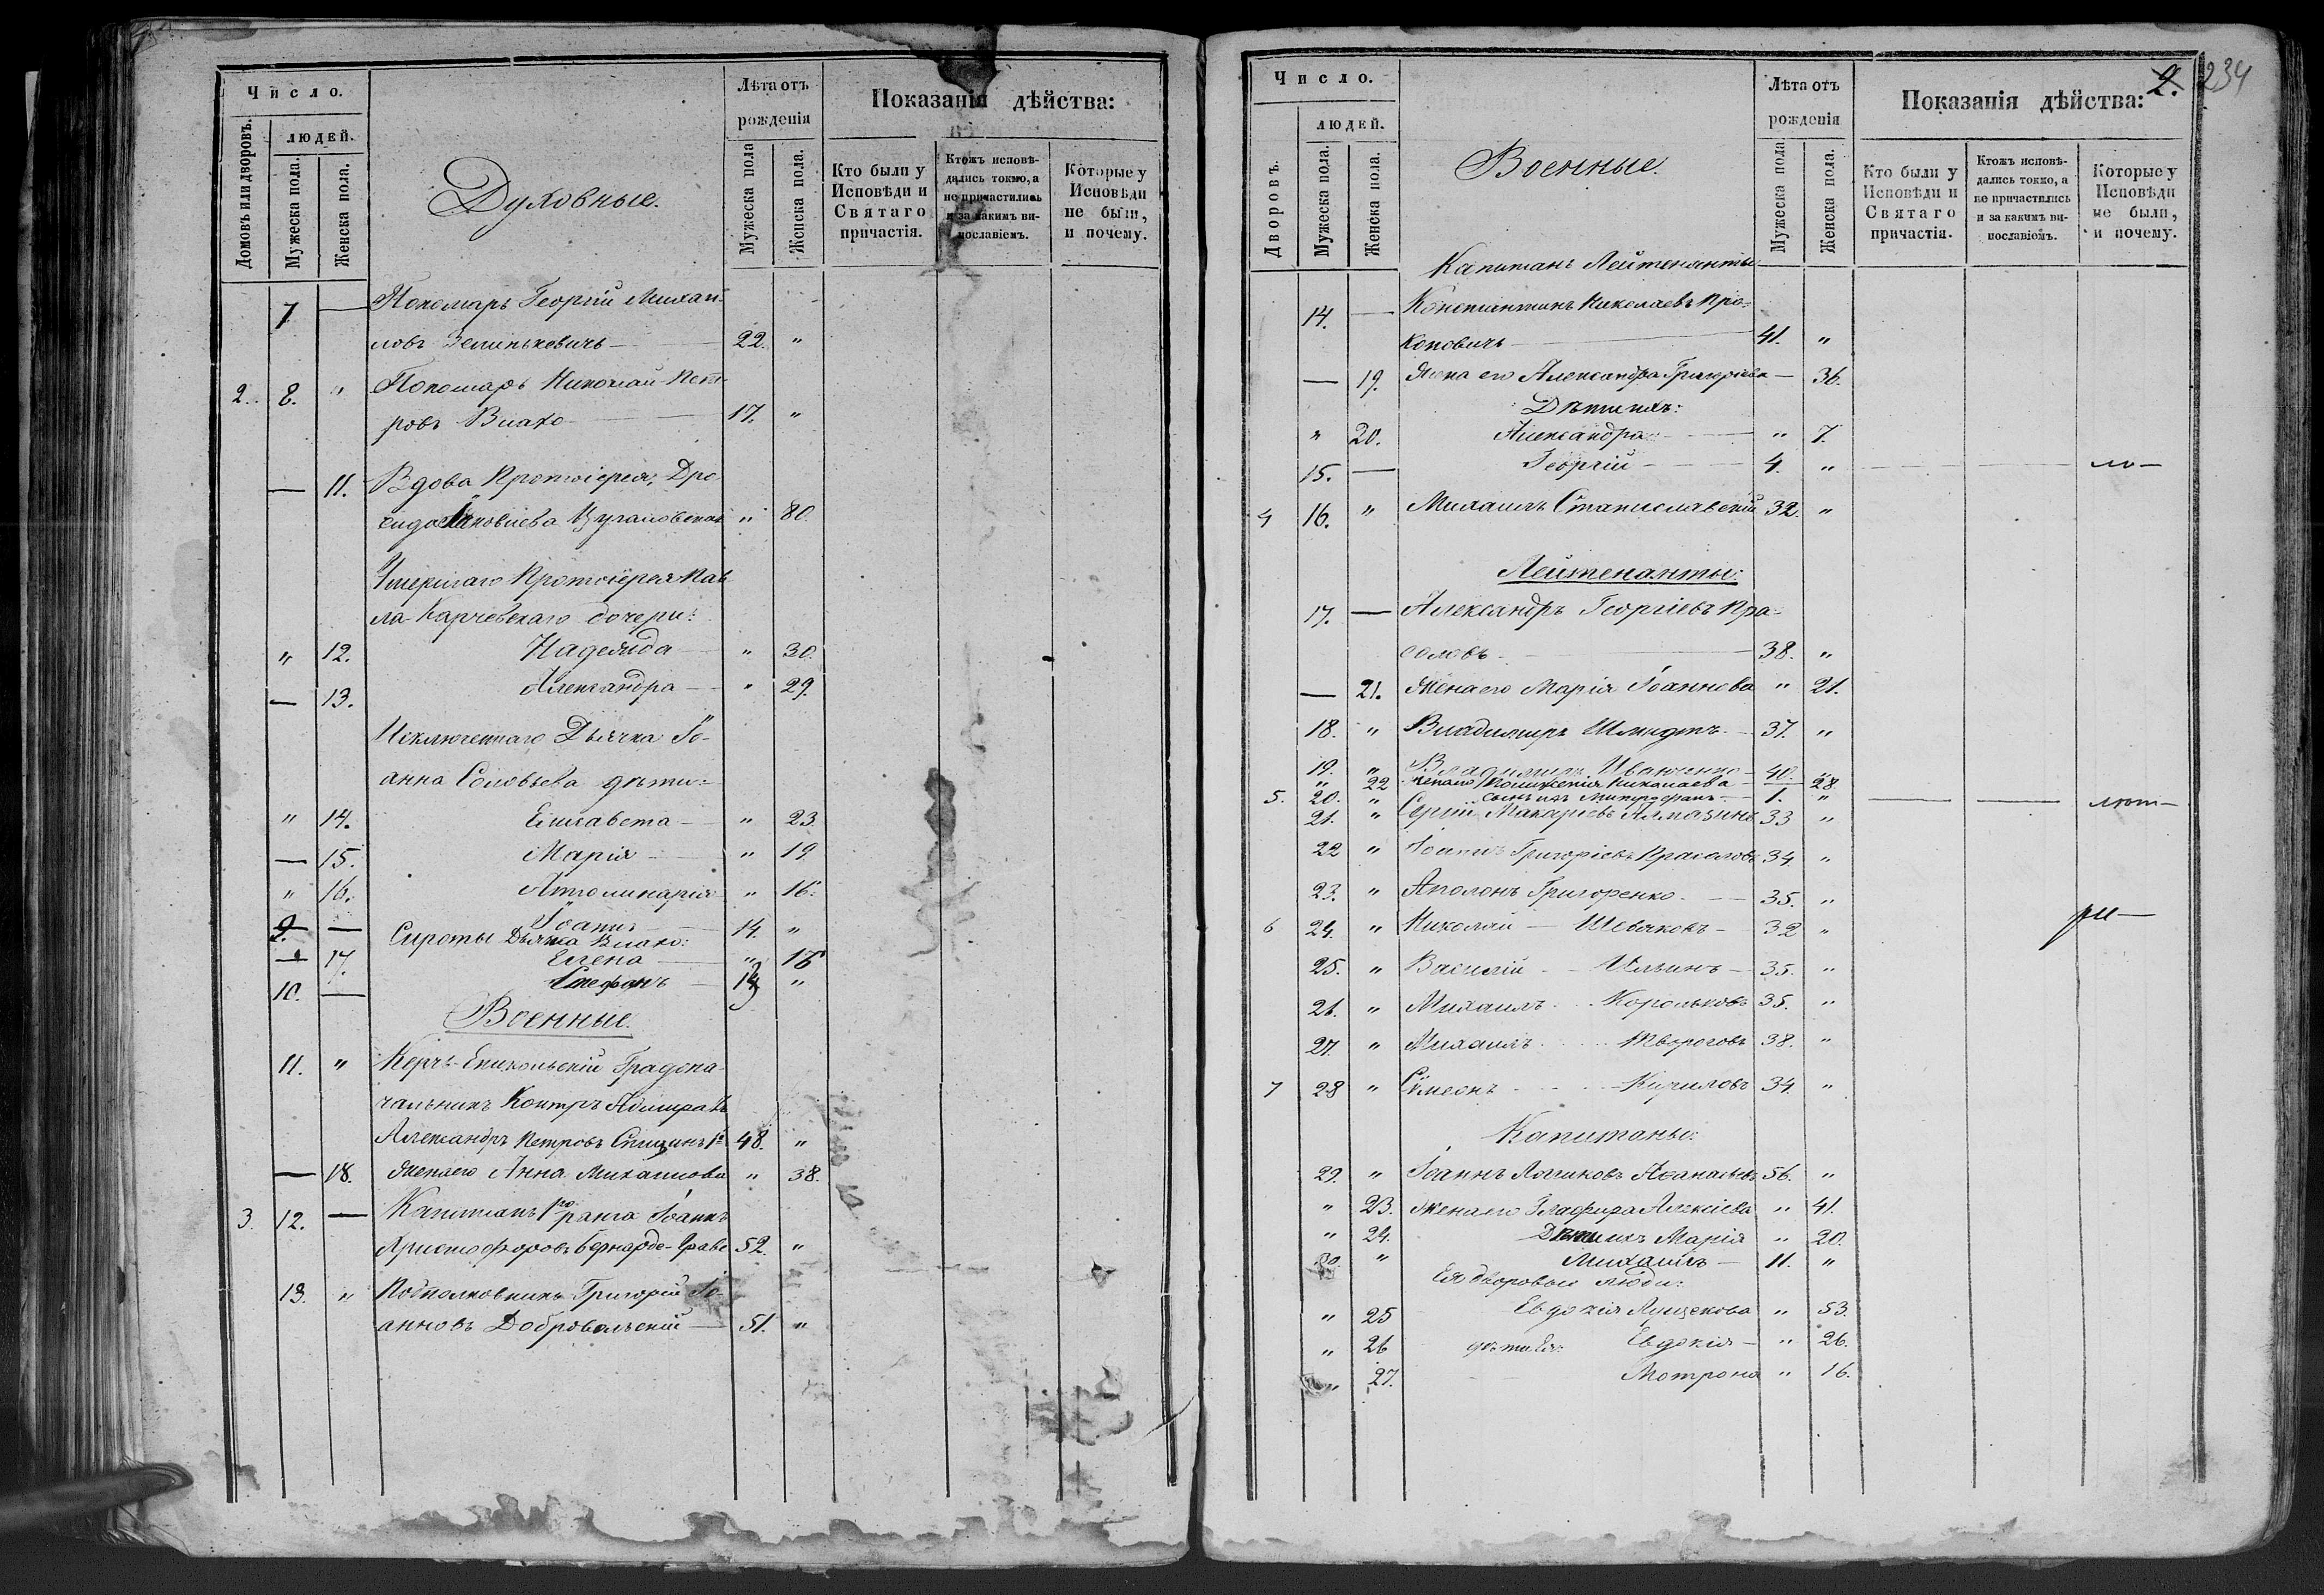 Число.
людей.
Домовъ или дворовъ.
Мужеска пола.
Женска пола.
Духовные.
Лѣта отъ рожденія
Мужеска пола
Женска пола.
Показанія дѣйства:
Кто были у Исповѣди и Святаго причастія.
Ктожъ исповѣдались токмо, а не причастились и за какимъ винословіемъ.
Которые у Исповѣди не были, и почему.
7 — Пономарь Георгій Михай-
ловъ 22. "
2. 8. " Пономарь Николай Пет-
ровъ Влахо — 17. "
— 11. Вдова Протоіерея,
" 80.
Умершаго Протоіерея Пав-
ла Карчевскаго дочери:
" 12. Надежда — " 30.
— 13. Александра — " 29.
Исключеннаго Дьячка Іо-
анна Соловьева дѣти:
" 14. Елисавета — " 23
— 15. Марія — " 19.
" 16. Апполинарія " 16.
9. — Іоаннъ 14. "
Сироты Дьячка Влахо:
— 17. Елена — "
10. — Стефанъ — "
Военные.
11. " Керчь-Еникольскій Градона-
чальникъ Контръ Адмиралъ
Александръ Петровъ Спицинъ 1й 48. "
— 18. Жена его Анна Михаилова " 38.
3. 12. — Капитанъ 1го ранга Іоаннъ
Христофоровъ Бернарде-Граве 52. "
13. " Подполковникъ Григорій Іо-
анновъ Добровольскій — 51. "
2. 234
Число.
людей.
Дворовъ.
Мужеска пола.
Женска пола.
Военные.
Лѣта отъ рожденія
Мужеска пола
Женска пола.
Показанія дѣйства:
Кто были у Исповѣди и Святаго причастія.
Ктожъ исповѣдались токмо, а не причастились и за какимъ винословіемъ.
Которые у Исповѣди не были, и почему.
Капитанъ Лейтенанты
14. — Константинъ Николаевъ Про-
коповичъ — 41. "
— 19. Жена его Александра Григоріева — 36.
Дѣти ихъ:
" 20. Александра — " 7.
15. — Георгій — 4. "
4 16. " Михаилъ Станиславскій 32. "
Лейтенанты:
17. — Александръ Георгіевъ Пра-
соловъ — 38. "
— 21. Жена его Марія Іоаннова " 21.
18. " Владимиръ Шмидтъ — 37. "
19. " Владимиръ Иванченко — 40. "
" 22 Жена его Николаева — 28
5. 20. " сынъ ихъ Митрофанъ — 1. "
21. " Сергій Макаріевъ Алмазинъ 33 "
22 " Іоаннъ Григоріевъ Прасоловъ 34. "
23. " Аполонъ Григоренко — 35. "
6 24. " Николай — Шевяковъ — 32 "
25. " Василій — Ильинъ — 35. "
26. " Михаилъ Корольковъ 35. "
27. " Михаилъ Твороговъ 38. "
7 28 " Сѵмеонъ — Кириловъ 34. "
Капитаны:
29. " Іоаннъ Логиновъ Аѳанасьевъ 56. "
" 23. Жена его Глафира Алексіева " 41.
" 24. Дѣти ихъ Марія " 20.
30. " Михаилъ — 11. "
Ея дворовые люди:
" 25 Евдокія " 53.
" 26 дѣти Ея: Евдокія — " 26.
" 27. Мотрона " 16.